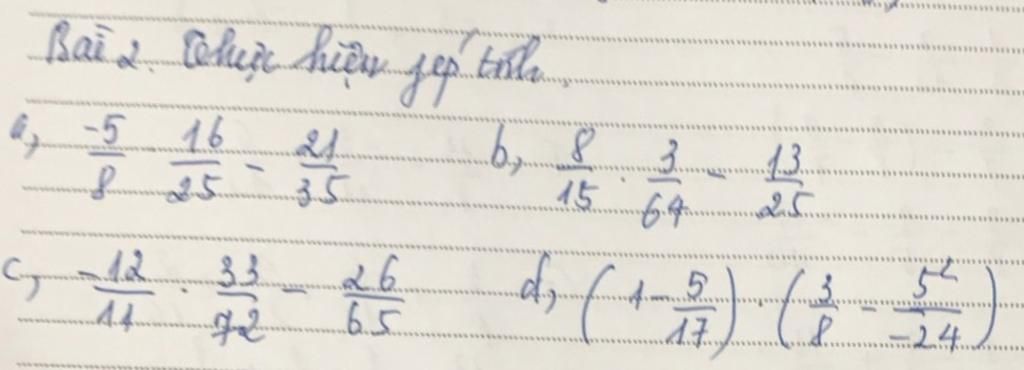 Bài 2. Thực hiện phép tính.
a, -5/8 · 16/25 - 21/35 b, 8/15 · 3/64 - 13/25
c, -12/11 · 33/72 - 26/65 d, (1 - 5/17) · (3/8 - 5²/-24)